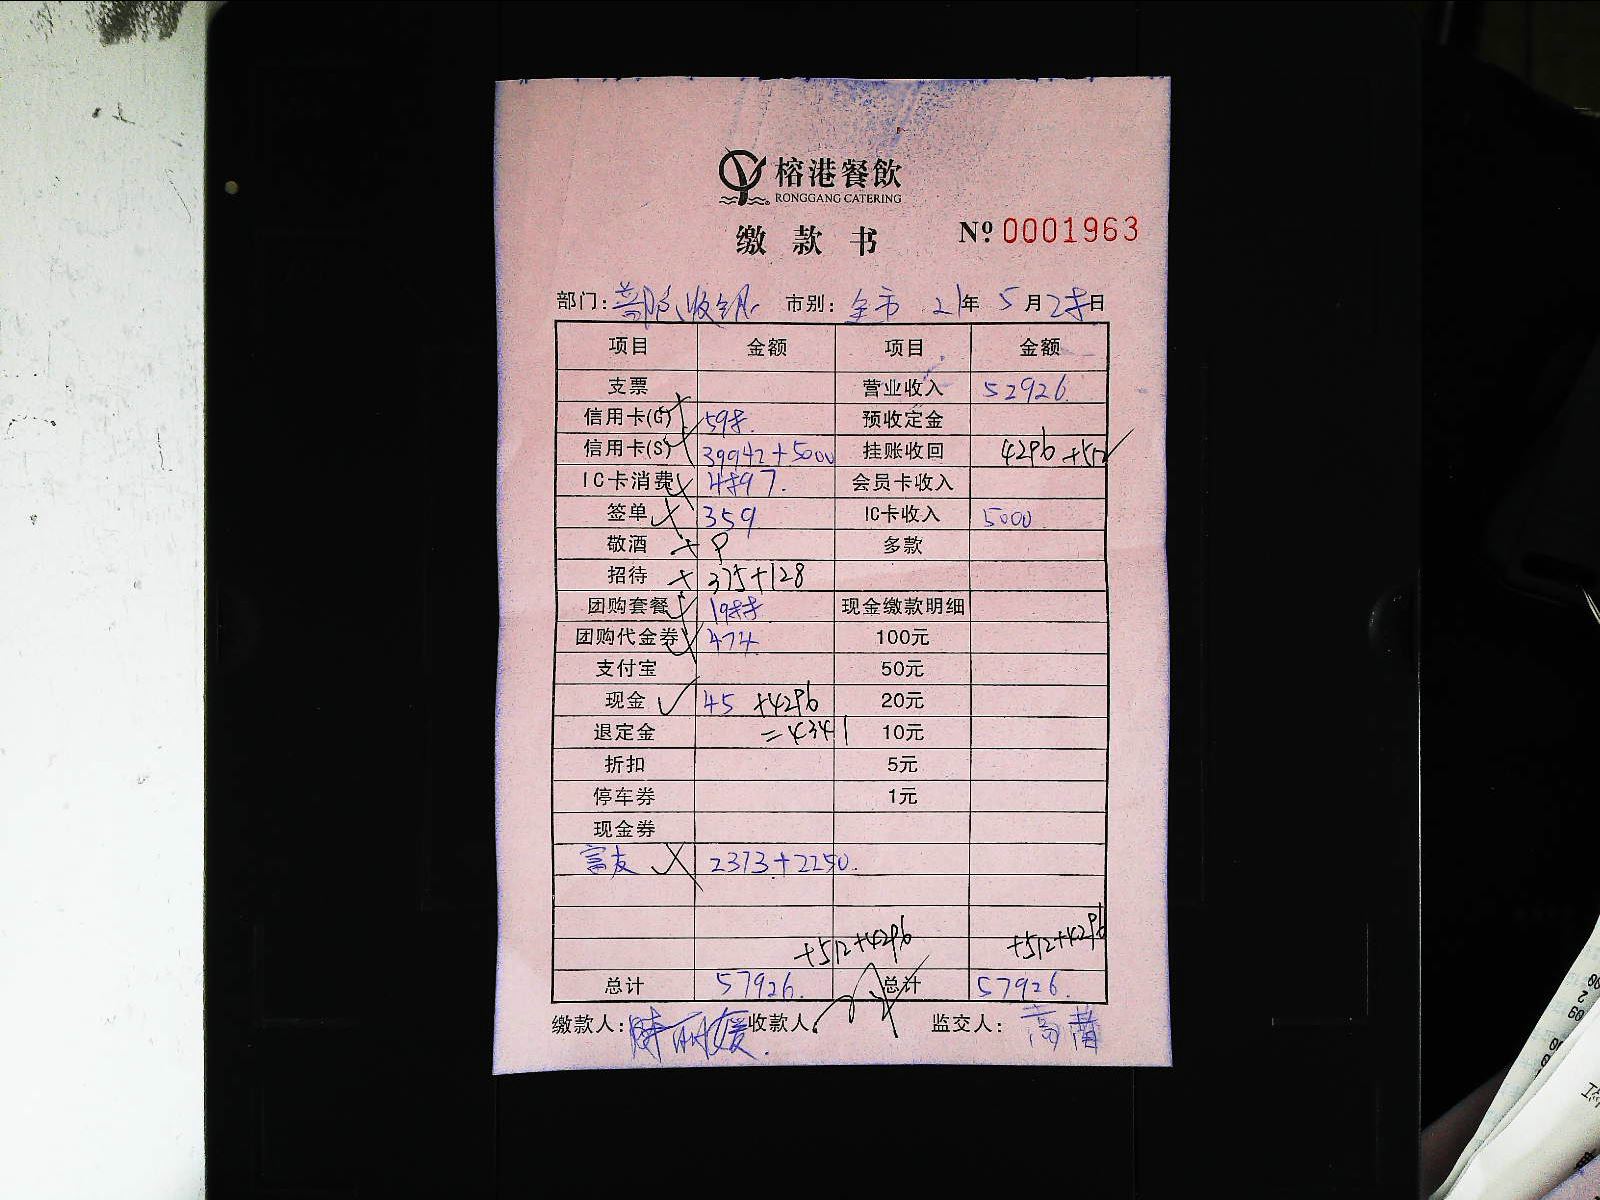 榕港餐飲
RONGGANG CATERING
缴款书 Nº 0001963
部门: 收银 市别: 全市 21年 5月 28日
项目 金额 项目 金额
支票 营业收入 52926.
信用卡(G) 598. 预收定金
信用卡(S) 39942+5000 挂账收回 4296 +512
IC卡消费 4897. 会员卡收入
签单 359 IC卡收入 5000
敬酒 多款
招待 375+128
团购套餐 1988 现金缴款明细
团购代金券 474 100元
支付宝 50元
现金 45 +4296 20元
退定金 =4341 10元
折扣 5元
停车券 1元
现金券
富友 2373+2250.
+512+4296 +512+4296
总计 57926. 总计 57926.
缴款人: 收款人: 监交人: 高蕾